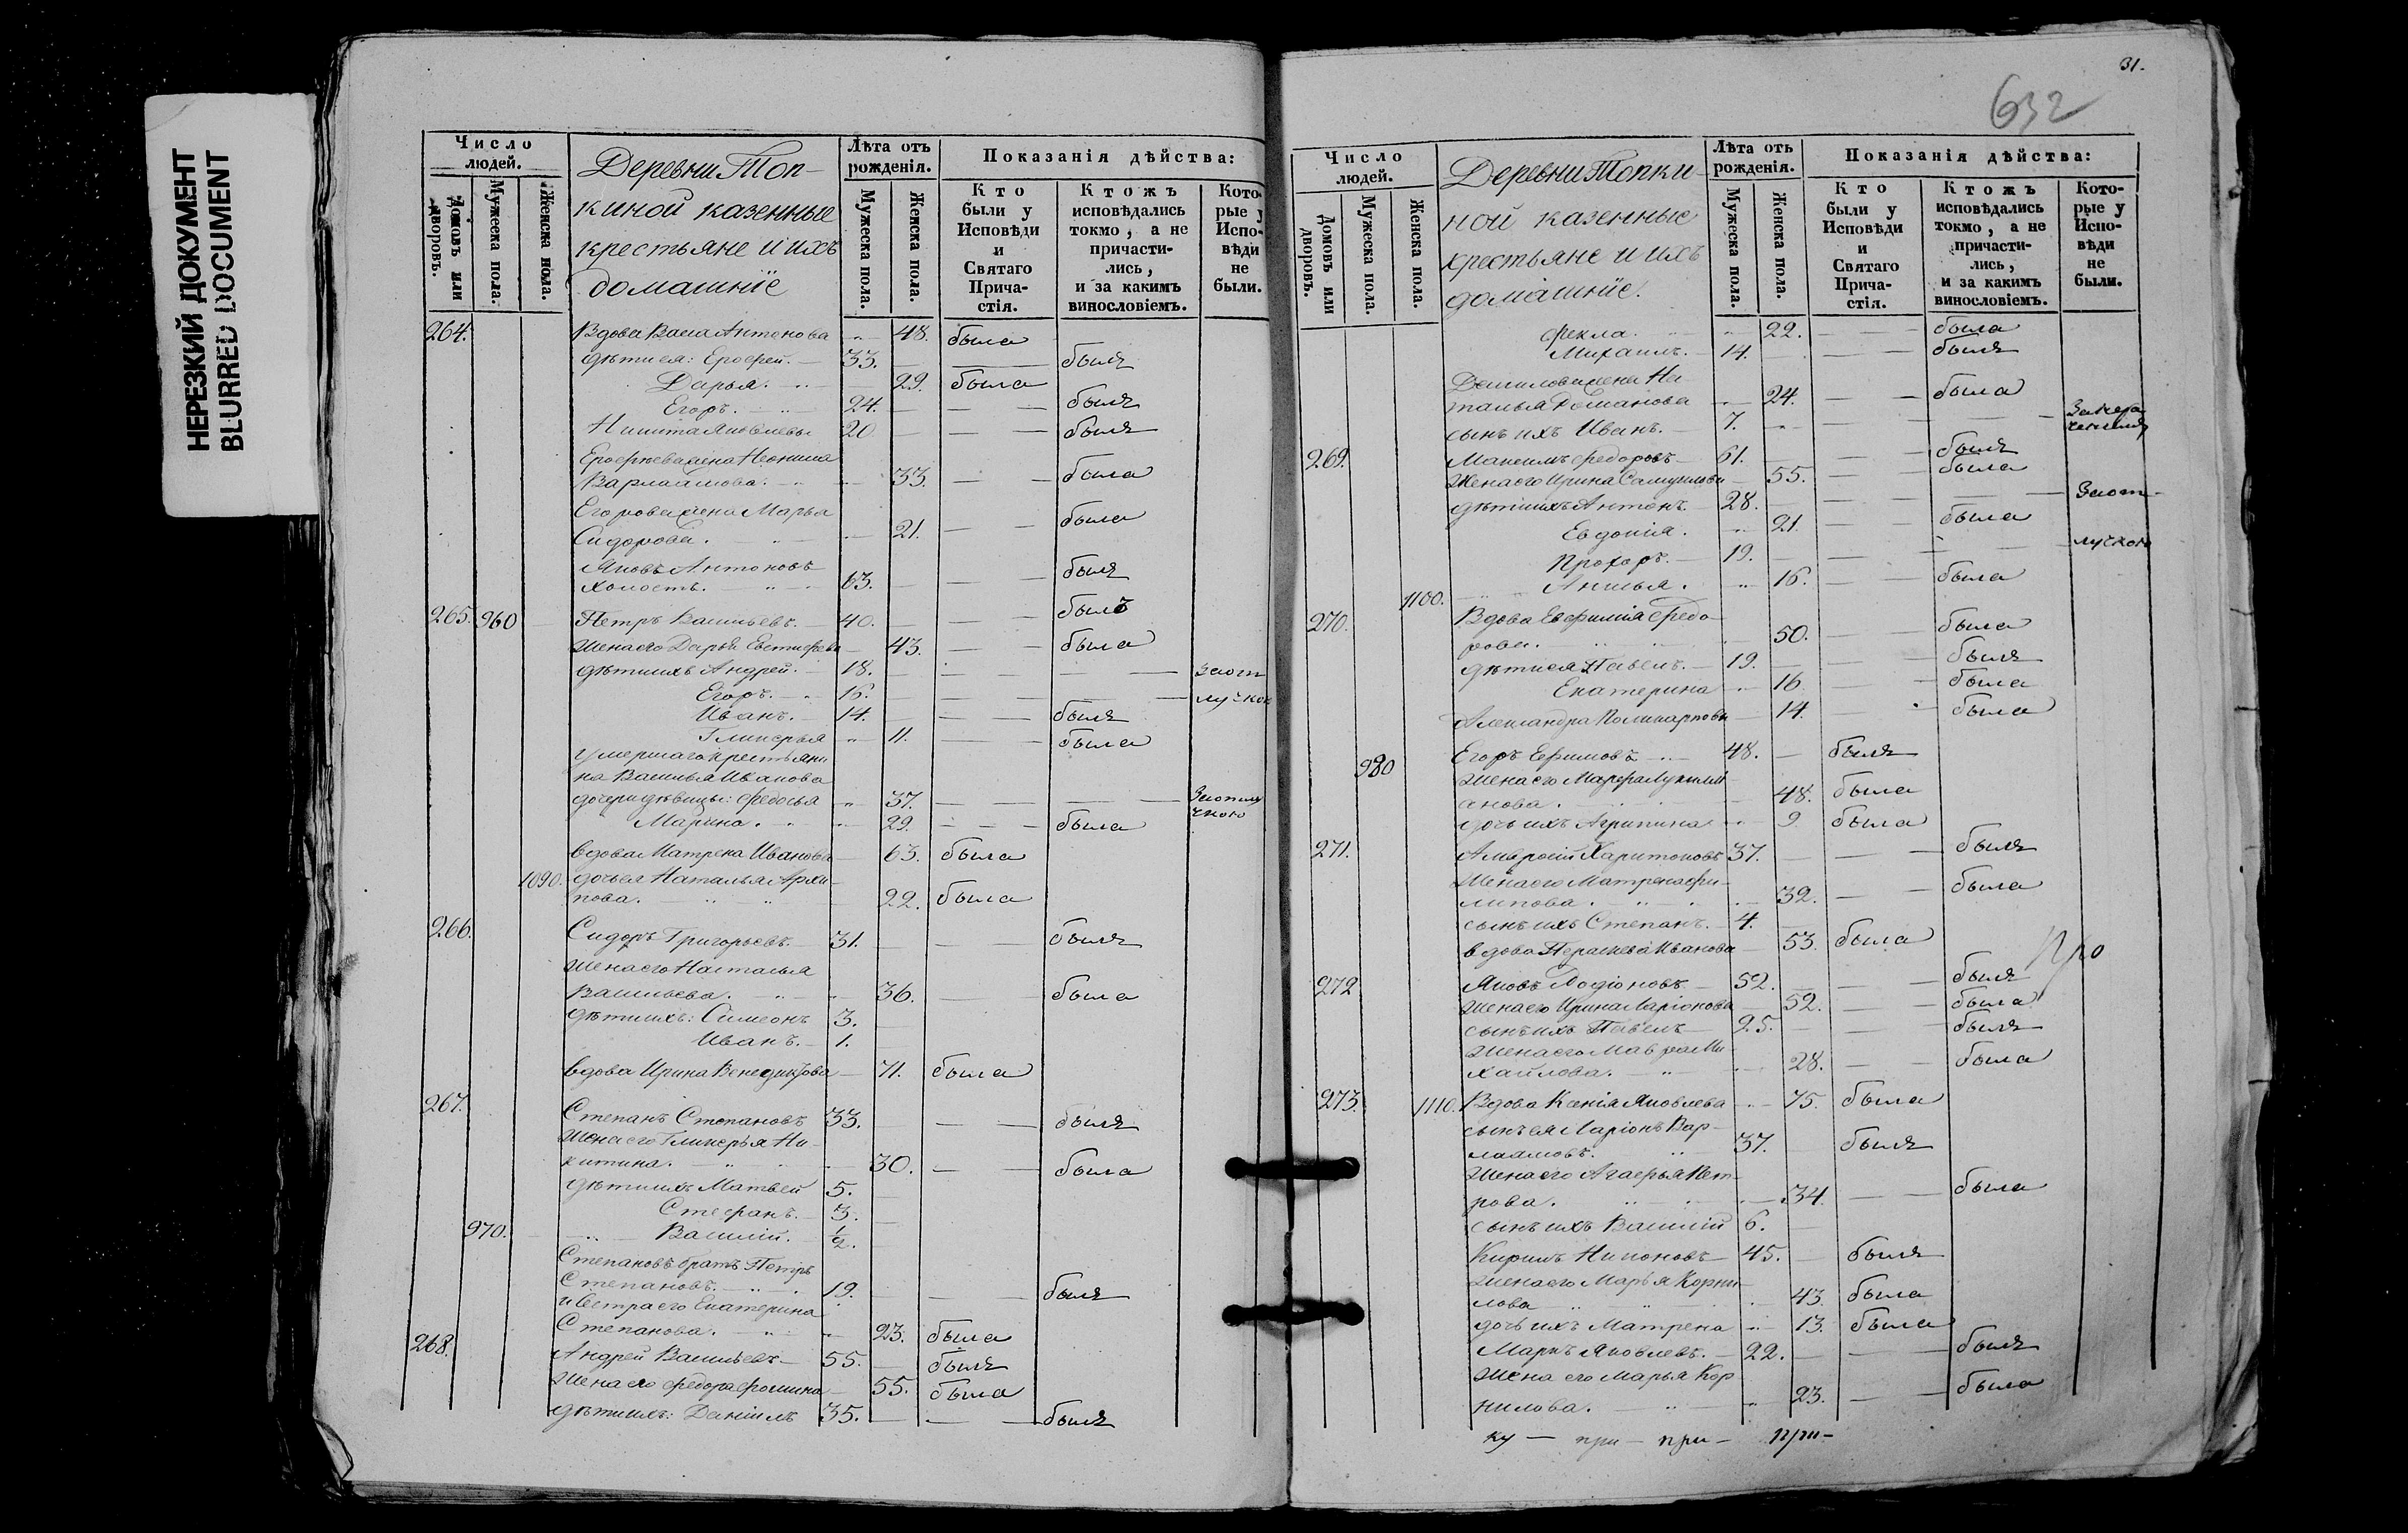 НЕРЕЗКИЙ ДОКУМЕНТ
BLURRED DOCUMENT
Число людей.
Домовъ или дворовъ.
Мужеска пола.
Женска пола.
Деревни Топ-
киной казенные
крестьяне и ихъ
домашніе
Лѣта отъ рожденія.
Мужеска пола.
Женска пола.
Показанія дѣйства:
Кто были у Исповѣди и Святаго Прича-стія.
Ктожъ исповѣдались токмо, а не причасти-лись, и за какимъ винословіемъ.
Кото-рые у Испо-вѣди не были.
264. Вдова Васса Антонова 48. была
дѣти ея: Ерофей. 33. былъ
Дарья. 29. была
Егоръ. 24. былъ
Никита Яковлевы 20 былъ
Ерофѣева жена
Варлаамова. 33. была
Егорова жена Марья
Сидорова. 21. была
Яковъ Антоновъ
холостъ. 63. былъ
265. 960 Петръ Васильевъ. 40. былъ
Жена его Дарья Евстифеева 43. была
дѣти ихъ Андрей. 18. За от
Егоръ. 16. лучкою
Иванъ. 14. былъ
Гликерья 11. была
Умершаго крестьяни
на Василья Иванова
дочери дѣвицы: Федосья 37. За отлу
Марина. 29. была чкою
вдова Матрена Иванова 63. была
1090. дочь ея Наталья Архи-
пова. 22. была
266. Сидоръ Григорьевъ. 31. былъ
Жена его Наталья
Васильева. 36. была
дѣти ихъ: Симеонъ 3.
Иванъ. 1.
вдова Ирина Венедиктова 71. была
267. Степанъ Степановъ 33. былъ
Жена его Гликерья Ни-
китина. 30. была
дѣти ихъ Матвей 5.
Стефанъ. 3.
970. Василій. 1/2.
Степановъ братъ Петръ
Степановъ. 19. былъ
и Сестра его Екатерина
Степанова. 23. была
268. Андрей Васильевъ 55. былъ
Жена его Федора Фомина 55. была
дѣти ихъ: Даніилъ 35. былъ
31.
632
Число людей.
Домовъ или дворовъ.
Мужеска пола.
Женска пола.
Деревни Топки-
ной казенные
крестьяне и ихъ
домашніе.
Лѣта отъ рожденія.
Мужеска пола.
Женска пола.
Показанія дѣйства:
Кто были у Исповѣди и Святаго Прича-стія.
Ктожъ исповѣдались токмо, а не причасти-лись, и за какимъ винословіемъ.
Кото-рые у Испо-вѣди не были.
Фекла. 22. была
Михаилъ. 14. былъ
Данилова жена На
талья Романова 24. была
сынъ ихъ Иванъ. 7.
269. Максимъ Федоровъ 61. былъ
Жена его Ирина Самуилова 55. была
дѣти ихъ Антонъ. 28. За от-
Евдокія. 21. была
Прохоръ. 19. лучкою
1100. Анисья. 16. была
270. Вдова Евфимія Федо-
рова. 50. была
дѣти ея Павелъ. 19. былъ
Екатерина 16 была
Александра Поликарповы 14. была
980 Егоръ Ефимовъ 48. былъ
Жена его Марфа Лукилли
анова. 48. была
дочь ихъ Агрипина 9 была
271. Амвросій Харитоновъ 37. былъ
Жена его Матрена Фи-
липова. 32. была
сынъ ихъ Степанъ. 4.
вдова Параскева Иванова 53. была
272 Яковъ Родіоновъ. 52. былъ
Жена его Ирина Ларіонова 52. была
сынъ ихъ Павелъ 25. былъ
Жена его Мавра Ми-
хайлова. 28. была
273. 1110. Вдова Ксенія Яковлева 75. была
сынъ ея Ларіонъ Вар-
лаамовъ. 37. былъ
Жена его Агафья Пет-
рова. 34. была
сынъ ихъ Василій 6.
Кирилъ Никоновъ 45. былъ
Жена его Марья Корни-
лова 43. была
дочь ихъ Матрена 13. была
Маркъ Яковлевъ. 22. былъ
Жена его Марья Кор
нилова. 23. была
ку — при — при — при —